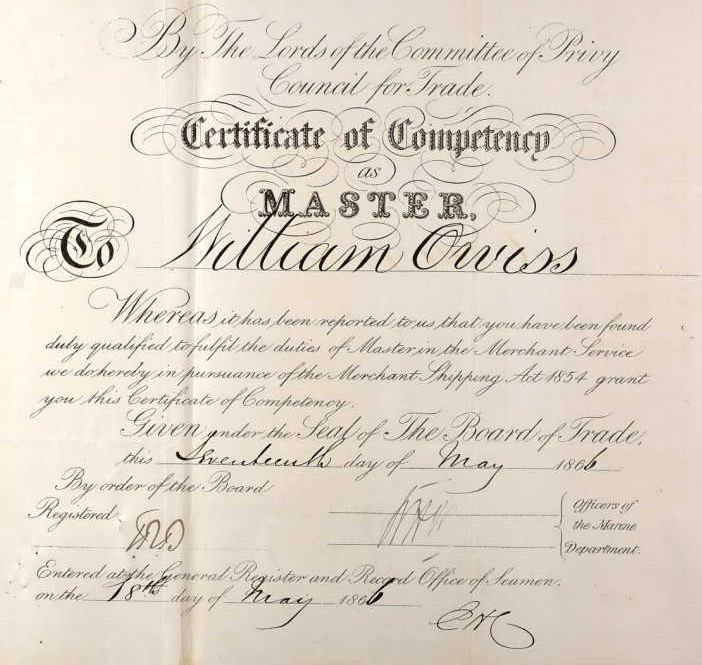 By The Lords of the Committee of Privy
Council for Trade.
Certificate of Competency
as
MASTER,
To William Orviss
Whereas it has been reported to us that you have been found
duly qualified to fulfil the duties of Master in the Merchant Service
we do hereby in pursuance of the Merchant Shipping Act 1854 grant
you this Certificate of Competency.
Given under the Seal of The Board of Trade,
this Seventeenth day of May 1866
By order of the Board
Registered
Officers of
the Marine
Department.
Entered at the General Register and Record Office of Seamen.
on the 18th day of May 1866